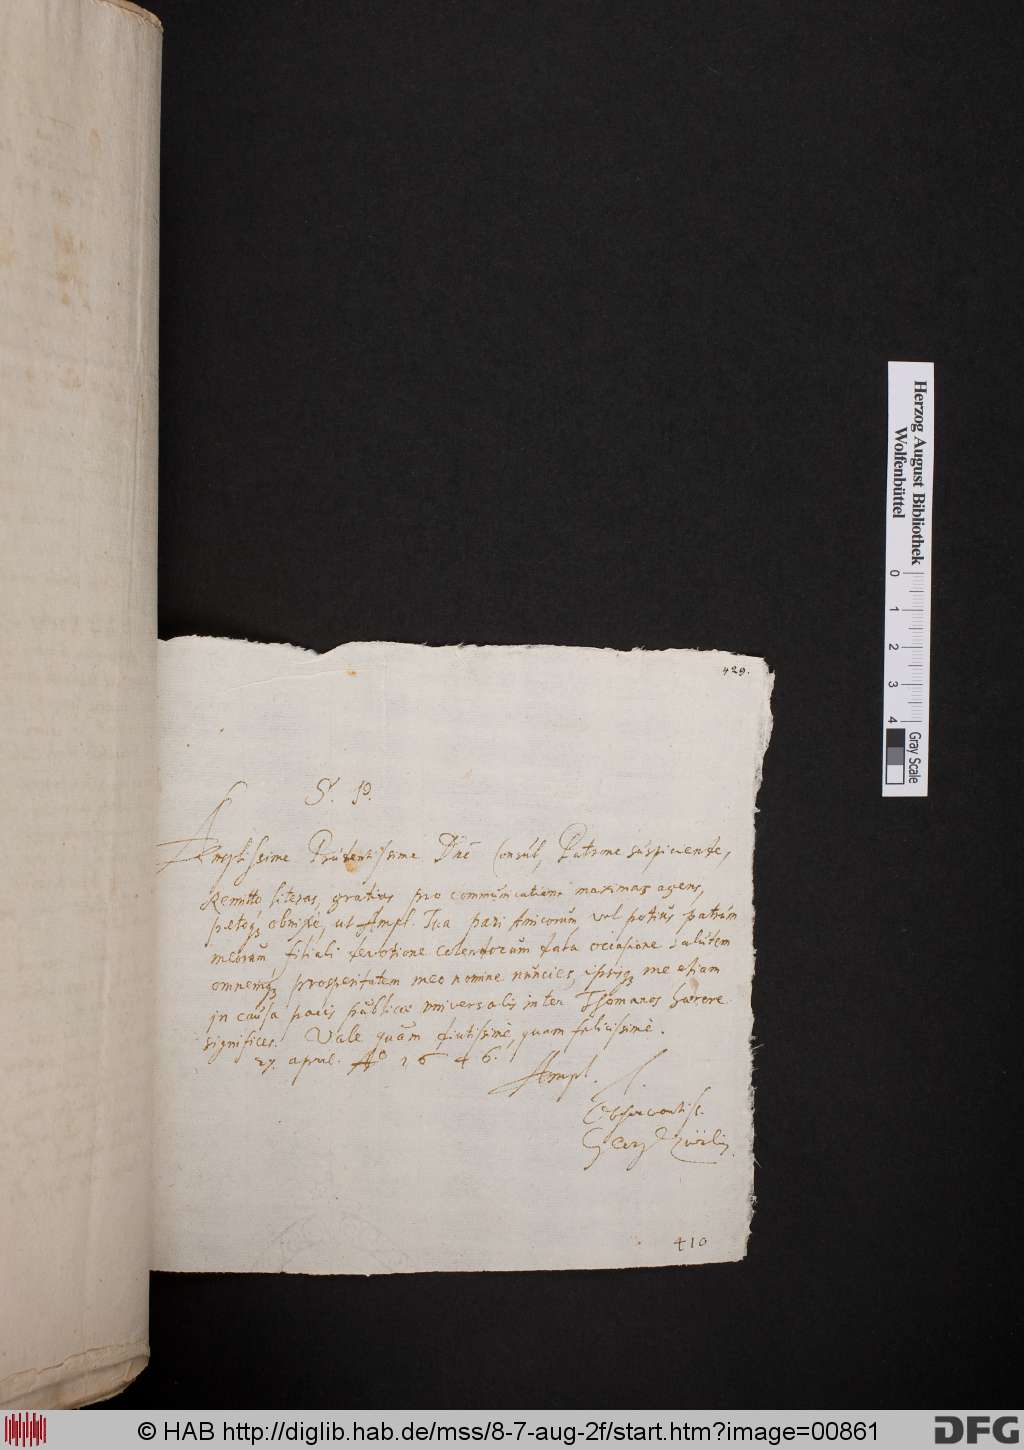 429.
S. P.
Amplissime Prudentissime Dne Consul, Patrone suspiciende,
Remitto literas, gratias pro communicatione maximas agens,
petoq; obnixe, ut Ampl. Tua pari Amicorum vel potius patrum
meorum filiali devotione colendorum data occasione salutem
omnemq; prosperitatem meo nomine nuncies, ipsisq; me etiam
in causa pacis publicae universalis inter Thomanos haerere
significes. Vale quam diutissimè, quam felicissimè.
27. april. Ao 1646.
Ampl. T.
Observantiss.
Georg
410
Herzog August Bibliothek
Wolfenbüttel
0 1 2 3 4
Gray Scale
© HAB http://diglib.hab.de/mss/8-7-aug-2f/start.htm?image=00861
DFG